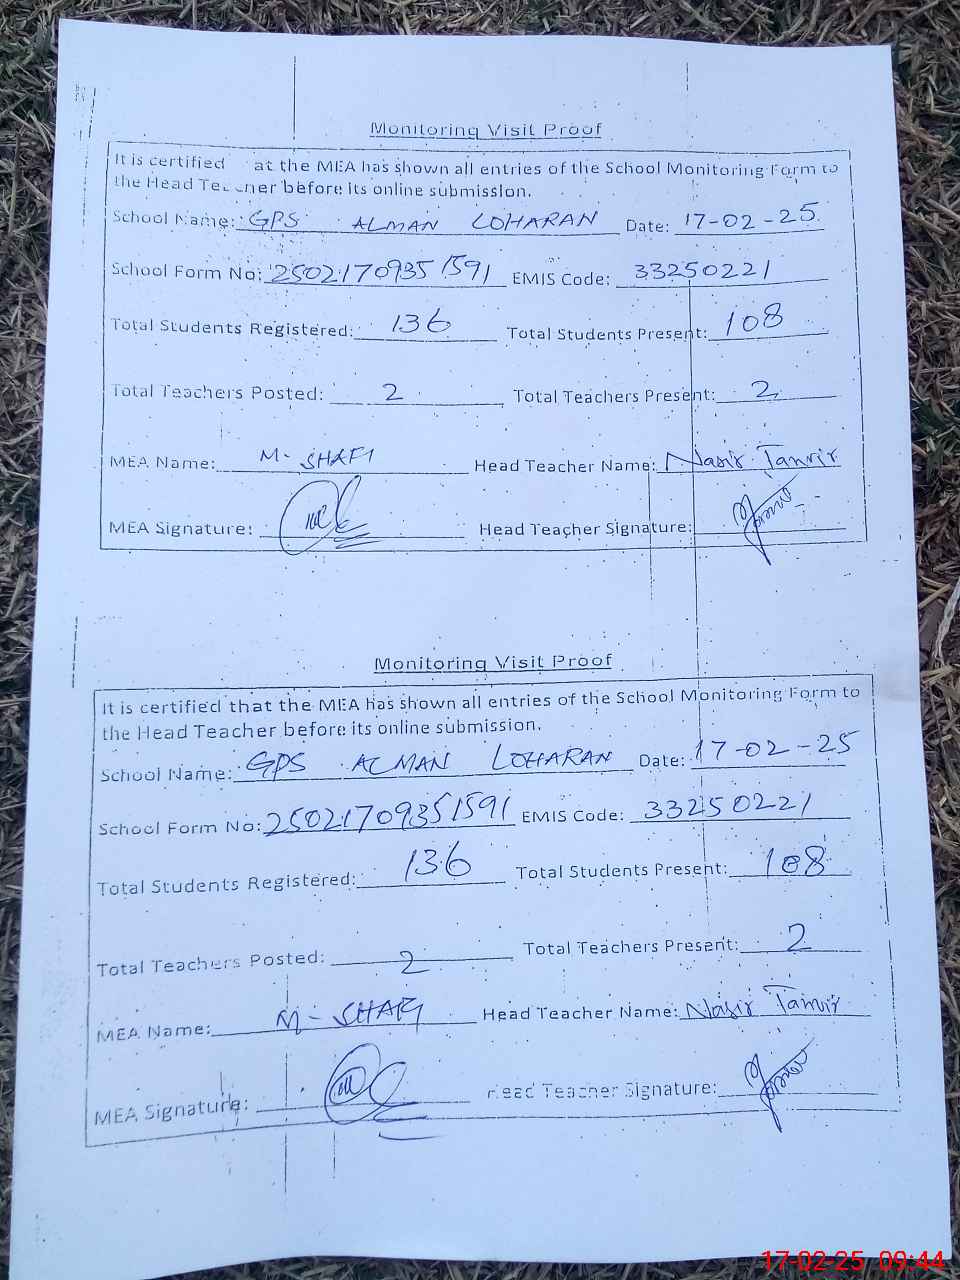 Monitoring Visit Proof
It is certified at the MEA has shown all entries of the School Monitoring Form to
the Head Teacher before its online submission.
School Name: GPS ALMAN LOHARAN Date: 17-02-25
School Form No: 25021709351591 EMIS Code: 33250221
Total Students Registered: 136 Total Students Present: 108
Total Teachers Posted: 2 Total Teachers Present: 2
MEA Name: M- SHAFI Head Teacher Name: Nasir Tanvir
MEA Signature: Head Teacher Signature:
Monitoring Visit Proof
It is certified that the MEA has shown all entries of the School Monitoring Form to
the Head Teacher before its online submission.
School Name: GPS ALMAN LOHARAN Date: 17-02-25
School Form No: 25021709351591 EMIS Code: 33250221
Total Students Registered: 136 Total Students Present: 108
Total Teachers Posted: 2 Total Teachers Present: 2
MEA Name: M- SHAFI Head Teacher Name: Nasir Tanvir
MEA Signature: Head Teacher Signature:
17-02-25 09:44